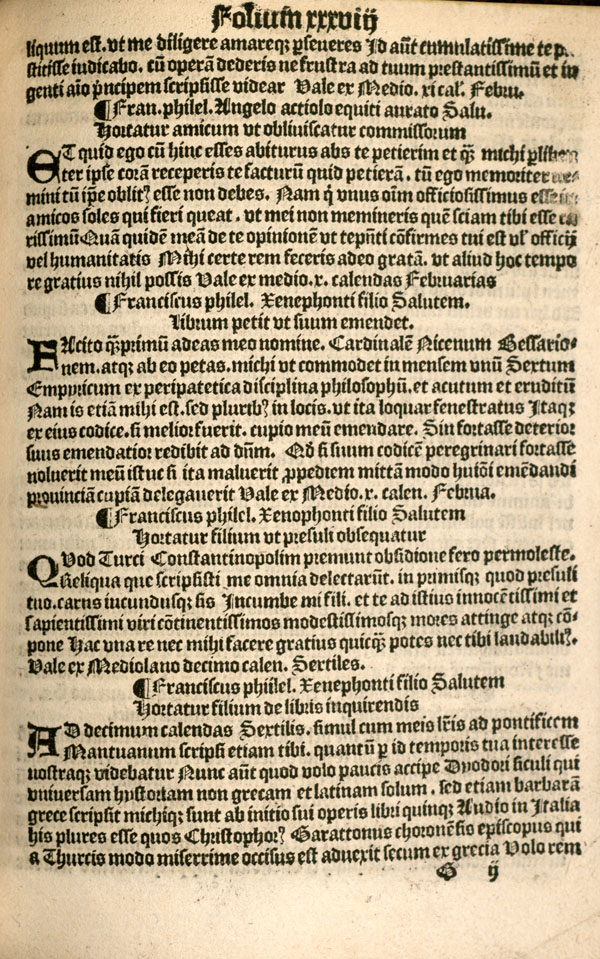 Folium xxxviij
liquum est. vt me diligere amareqꝫ ꝑseueres Id aūt cumulatissime te p
stitisse iudicabo. cū operā dederis ne frustra ad tuum prestantissimū et in
genti aīo pͥncipem scripsisse videar Vale ex Medio. xi cal. Febru.
¶ Fran. philel. Angelo actiolo equiti aurato Salu.
Hortatur amicum vt obliuiscatur commissorum
ET quid ego cū hinc esses abiturus abs te petierim et qͣꝫ michi ꝑliben
ter ipse corā receperis te facturū quid petierā. tū ego memoriter
mini tū ip̄e oblitꝰ esse non debes. Nam qͥ vnus oīm officiosissimus
amicos soles qui fieri queat. vt mei non memineris quē sciam tibi esse ca
rissimū Quā quidē meā de te opinionē vt tep̄nti cōfirmes tui est vl' officij
vel humanitatis Mihi certe rem feceris adeo gratā. vt aliud hoc tempo
re gratius nihil possis Vale ex medio. x. calendas Februarias
¶ Franciscus philel. Xenephonti filio Salutem.
Librum petit vt suum emendet.
FAcito qͣꝫprimū adeas meo nomine. Cardinalē Nicenum Bessario-
nem. atqꝫ ab eo petas. michi vt commodet in mensem vnū Sextum
Empyricum ex peripatetica disciplina philosophū. et acutum et eruditū
Nam is etiā mihi est. sed pluribꝰ in locis. vt ita loquar fenestratus Itaqꝫ
ex eius codice. si melior fuerit. cupio meū emendare. Sin fortasse deterior
suus emendatior redibit ad dn̄m. Qd̓ si suum codicē peregrinari fortasse
noluerit meū istuc si ita maluerit ꝓpediem mittā modo huiōi emēdandi
prouinciā cuipiā delegauerit Vale ex Medio. x. calen. Februa.
¶ Franciscus philel. Xenophonti filio Salutem
Hortatur filium vt presuli obsequatur
QVod Turci Constantinopolim premunt obsidione fero permoleste.
Reliqua que scripsisti me omnia delectarūt. in primisqꝫ quod presuli
tuo. carus iucundusqꝫ sis Incumbe mi fili. et te ad istius innocētissimi et
sapientissimi viri cōtinentissimos modestissimosqꝫ mores attinge atqꝫ cō-
pone Hac vna re nec mihi facere gratius quicqͣꝫ potes nec tibi laudabiliꝰ.
Vale ex Mediolano decimo calen. Sextiles.
¶ Franciscus phiilel. Xenephonti filio Salutem
Hortatur filium de libris inquirendis
AD decimum calendas Sextilis. simul cum meis lr̄is ad pontificem
Mantuanum scripsi etiam tibi. quantū ꝑ id temporis tua interesse
nostraqꝫ videbatur Nunc aūt quod volo paucis accipe Dyodori siculi qui
vniuersam hystoriam non grecam et latinam solum. sed etiam barbarā
grece scripsit michiqꝫ sunt ab initio sui operis libri quinqꝫ Audio in Italia
his plures esse quos Christophorꝰ Garattonus choronēsis episcopus qui
a Thurcis modo miserrime occisus est aduexit secum ex grecia Volo rem
G ij